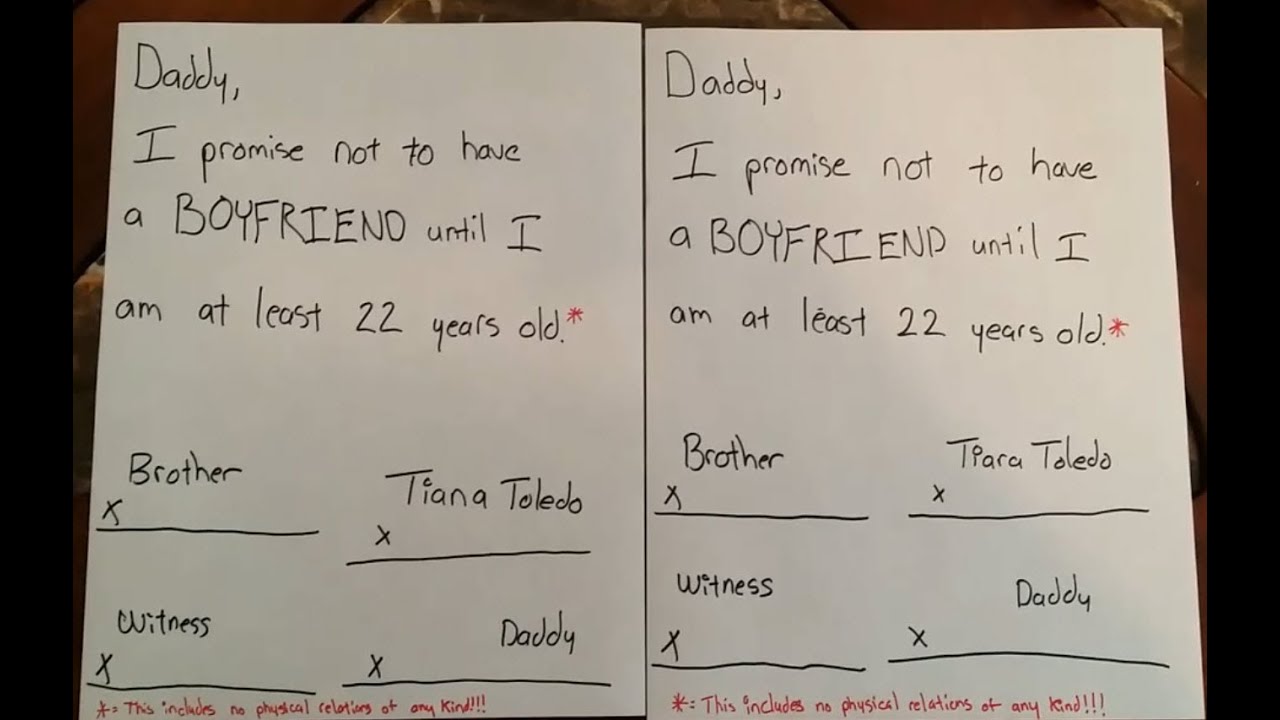 Daddy,
I promise not to have
a BOYFRIEND until I
am at least 22 years old.*
Brother
Tiana Toledo
X
X
Witness
Daddy
X
X
*= This includes no physical relations of any kind!!!
Daddy,
I promise not to have
a BOYFRIEND until I
am at least 22 years old.*
Brother
Tiara Toledo
X
X
Witness
Daddy
X
X
*= This includes no physical relations of any kind!!!